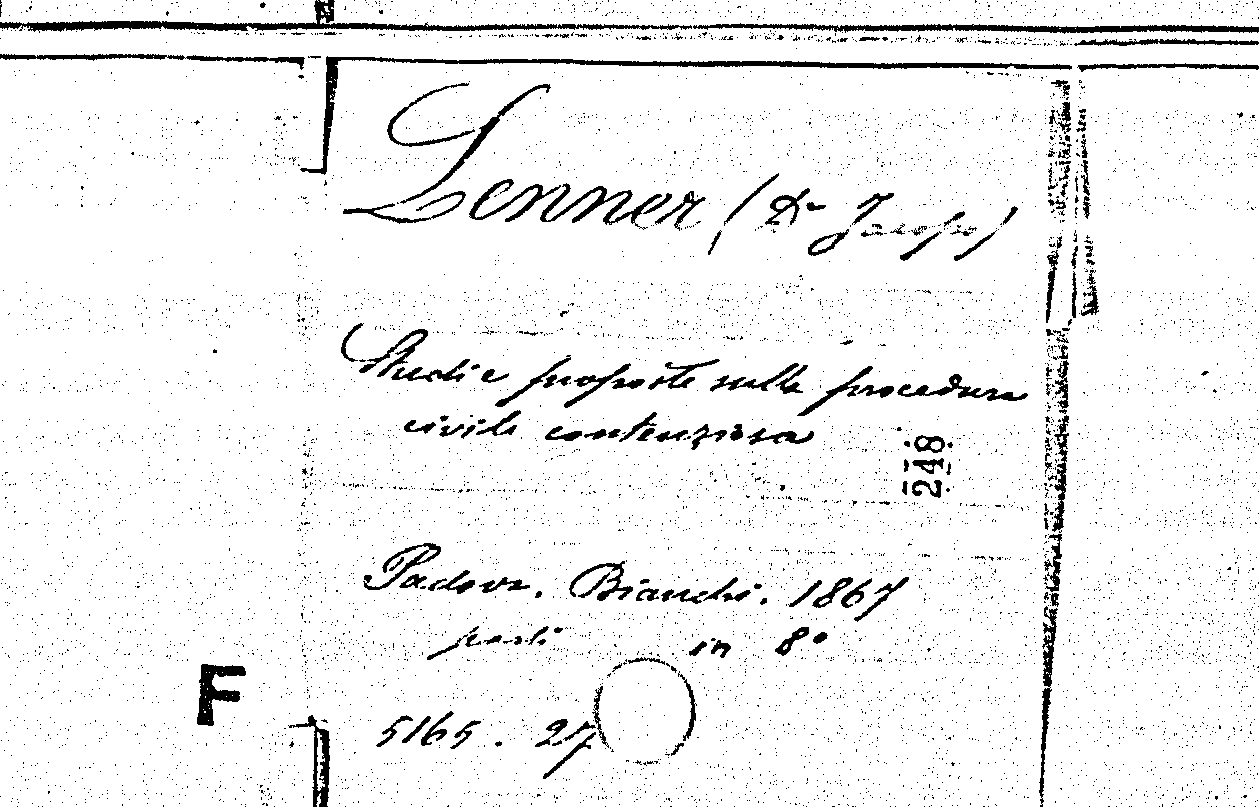 Lenner (Dr Jacopo)
Studi e proposte sulla procedura
civile contenziosa
248
Padova. Bianchi. 1867
in 8°
F
5165. 27